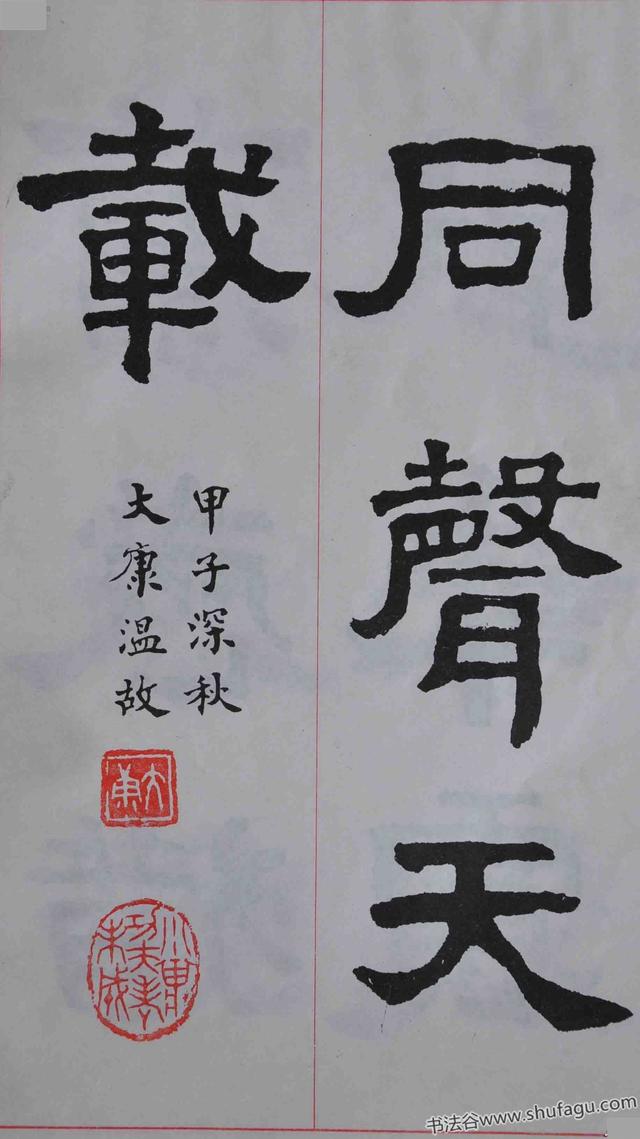 同聲天
載
甲子深秋
大康温故
大康
书法谷www.shufagu.com